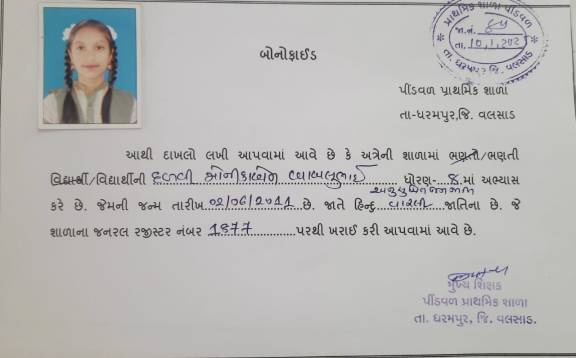 પ્રાથમિક શાળા પીંડવળ
જા.નં. ૬૫
તા. 10.1.202
તા. ધરમપુર જિ. વલસાડ
બોનોફાઈડ
પીંડવળ પ્રાથમિક શાળા
તા-ધરમપુર,જિ. વલસાડ
આથી દાખલો લખી આપવામાં આવે છે કે અત્રેની શાળામાં ભણતો/ભણતી
વિદ્યાર્થી/વિદ્યાર્થીની ધોરણ- 8 માં અભ્યાસ
અનુસુચિત જનજાતિ
કરે છે. જેમની જન્મ તારીખ 02/06/2011 છે. જાતે હિન્દુ વારલી જાતિના છે. જે
શાળાના જનરલ રજીસ્ટર નંબર 1877 પરથી ખરાઈ કરી આપવામાં આવે છે.
મુખ્ય શિક્ષક
પીંડવળ પ્રાથમિક શાળા
તા. ધરમપુર, જિ. વલસાડ.